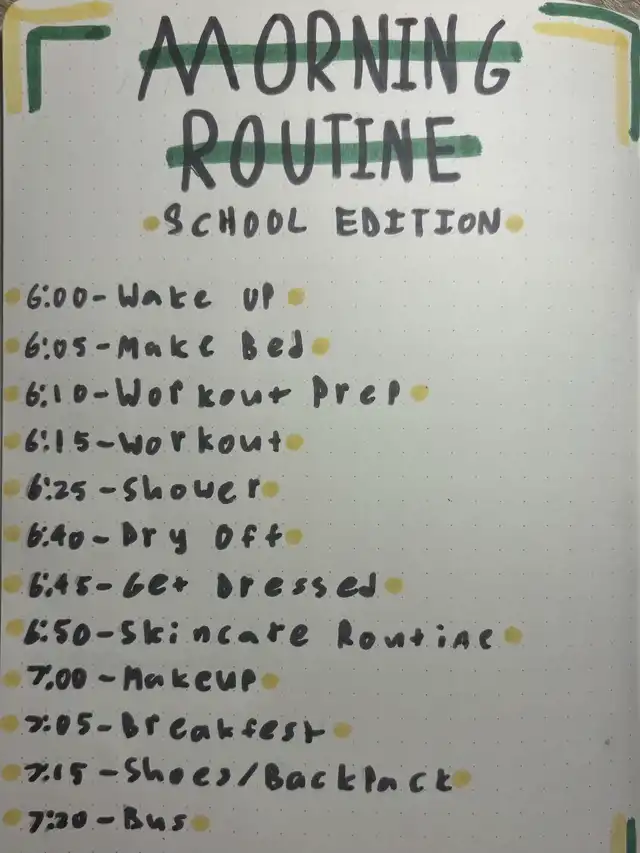 MORNING
ROUTINE
SCHOOL EDITION
6:00-Wake up
6:05-Make Bed
6:10-Workout Prep
6:15-Workout
6:25-Shower
6:40-Dry Off
6:45-Get Dressed
6:50-Skincare Routine
7:00-Makeup
7:05-Breakfest
7:15-Shoes/BackPack
7:20-Bus